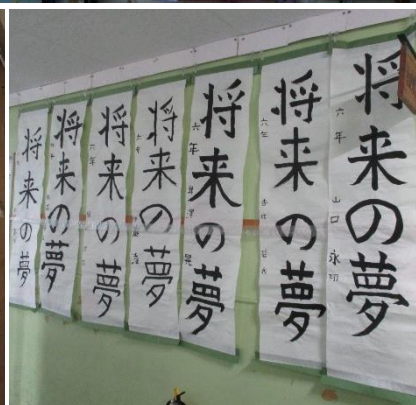 将来の夢
六年 山口 永
将来の夢
六年
将来の夢
六年
将来の夢
将来の夢
六年
将来の夢
将来の夢